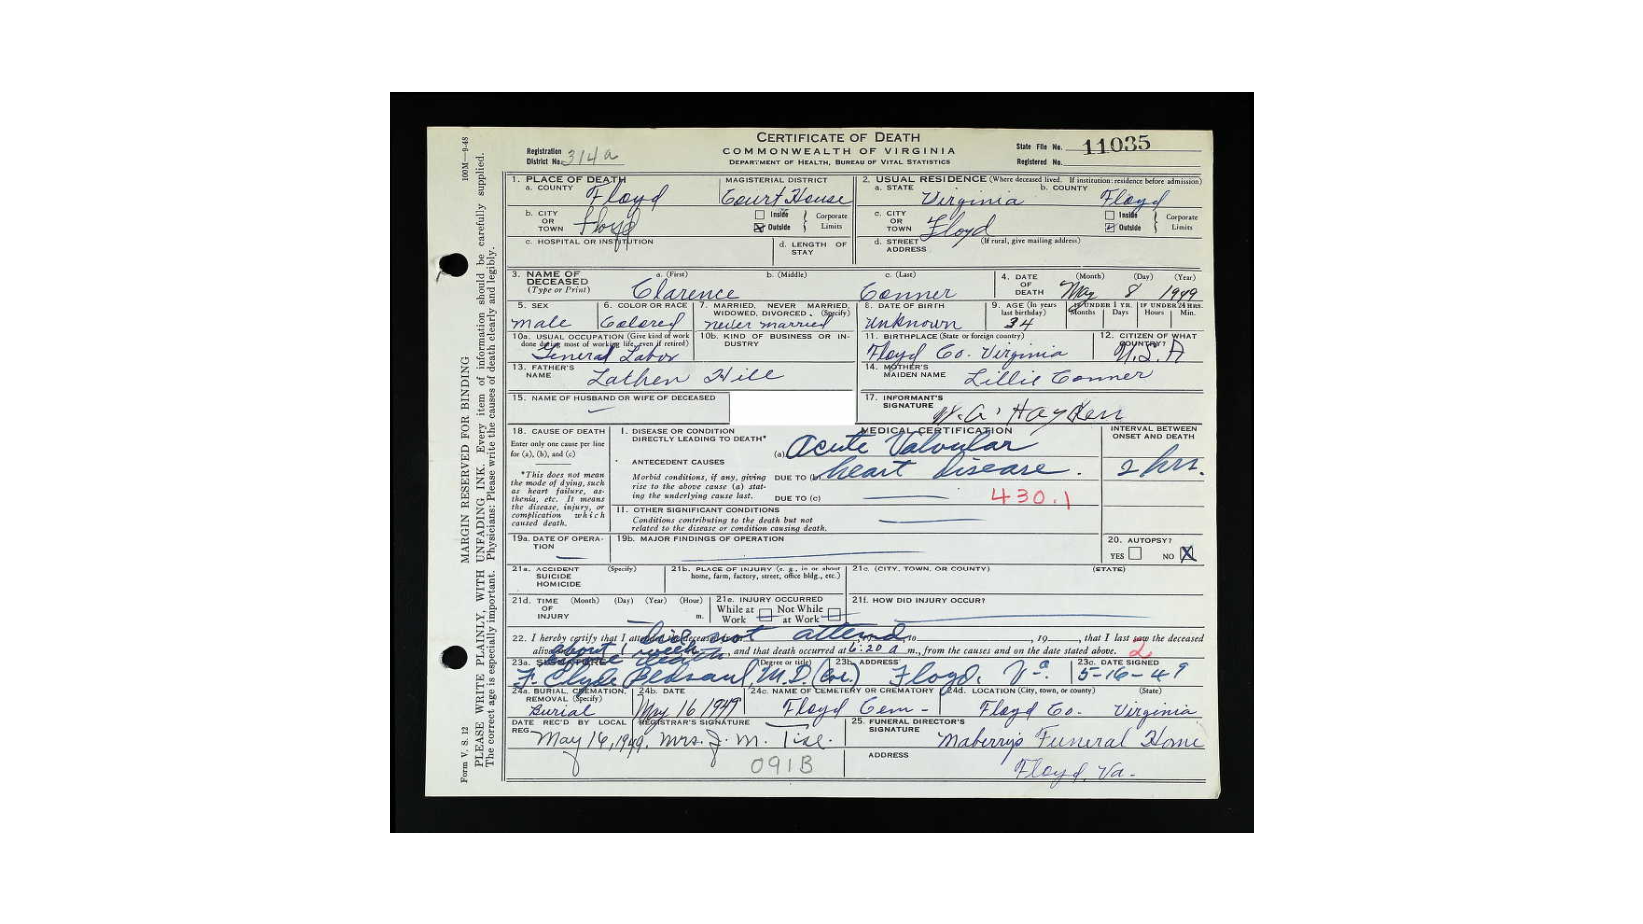 CERTIFICATE OF DEATH
COMMONWEALTH OF VIRGINIA
DEPARTMENT OF HEALTH, BUREAU OF VITAL STATISTICS
Registration District No. 314a
State File No. 11035
Registered No.
1. PLACE OF DEATH
a. COUNTY Floyd
MAGISTERIAL DISTRICT Court House
b. CITY OR TOWN Floyd
Inside
Outside
Corporate Limits
c. HOSPITAL OR INSTITUTION
d. LENGTH OF STAY
2. USUAL RESIDENCE (Where deceased lived. If institution: residence before admission)
a. STATE Virginia
b. COUNTY Floyd
c. CITY OR TOWN Floyd
Inside
Outside
Corporate Limits
d. STREET ADDRESS (If rural, give mailing address)
3. NAME OF DECEASED (Type or Print)
a. (First) Clarence
b. (Middle)
c. (Last) Conner
4. DATE OF DEATH (Month) (Day) (Year) May 8 1949
5. SEX male
6. COLOR OR RACE Colored
7. MARRIED, NEVER MARRIED, WIDOWED, DIVORCED, (Specify) never married
8. DATE OF BIRTH Unknown
9. AGE (In years last birthday) 34
IF UNDER 1 YR. Months Days
IF UNDER 24 HRS. Hours Min.
10a. USUAL OCCUPATION (Give kind of work done during most of working life, even if retired) General Labor
10b. KIND OF BUSINESS OR INDUSTRY
11. BIRTHPLACE (State or foreign country) Floyd Co. Virginia
12. CITIZEN OF WHAT COUNTRY? U.S.A
13. FATHER'S NAME Lathen Hill
14. MOTHER'S MAIDEN NAME Lillie Conner
15. NAME OF HUSBAND OR WIFE OF DECEASED —
17. INFORMANT'S SIGNATURE W.A. Hayden
18. CAUSE OF DEATH
Enter only one cause per line for (a), (b), and (c)
*This does not mean the mode of dying, such as heart failure, asthenia, etc. It means the disease, injury, or complication which caused death.
MEDICAL CERTIFICATION
INTERVAL BETWEEN ONSET AND DEATH
I. DISEASE OR CONDITION DIRECTLY LEADING TO DEATH* (a) Acute Valvular
ANTECEDENT CAUSES
Morbid conditions, if any, giving rise to the above cause (a) stating the underlying cause last.
DUE TO (b) heart disease. 2 hrs.
DUE TO (c) — 430.1
II. OTHER SIGNIFICANT CONDITIONS
Conditions contributing to the death but not related to the disease or condition causing death. —
19a. DATE OF OPERATION —
19b. MAJOR FINDINGS OF OPERATION
20. AUTOPSY?
YES NO X
21a. ACCIDENT SUICIDE HOMICIDE (Specify)
21b. PLACE OF INJURY (e. g., in or about home, farm, factory, street, office bldg., etc.)
21c. (CITY, TOWN, OR COUNTY) (STATE)
21d. TIME OF INJURY (Month) (Day) (Year) (Hour) m.
21e. INJURY OCCURRED
While at Work Not While at Work
21f. HOW DID INJURY OCCUR?
22. I hereby certify that I attended the deceased did not attend to , 19 , that I last saw the deceased
alive about 1 week before death, and that death occurred at 6:20 a m., from the causes and on the date stated above. 2
23a. SIGNATURE (Degree or title) F. Clyde Bedsaul, M.D. (Cor.)
23b. ADDRESS Floyd, Va.
23c. DATE SIGNED 5-16-49
24a. BURIAL, CREMATION, REMOVAL (Specify) Burial
24b. DATE May 16 1949
24c. NAME OF CEMETERY OR CREMATORY Floyd Cem
24d. LOCATION (City, town, or county) (State) Floyd Co. Virginia
DATE REC'D BY LOCAL REG. May 16, 1949.
REGISTRAR'S SIGNATURE Mrs. J. M.
25. FUNERAL DIRECTOR'S SIGNATURE Maberrys Funeral Home
091B
ADDRESS Floyd, Va.
100M—9-48
MARGIN RESERVED FOR BINDING
Form V. S. 12
PLEASE WRITE PLAINLY, WITH UNFADING INK. Every item of information should be carefully supplied.
The correct age is especially important. Physicians: Please write the causes of death clearly and legibly.